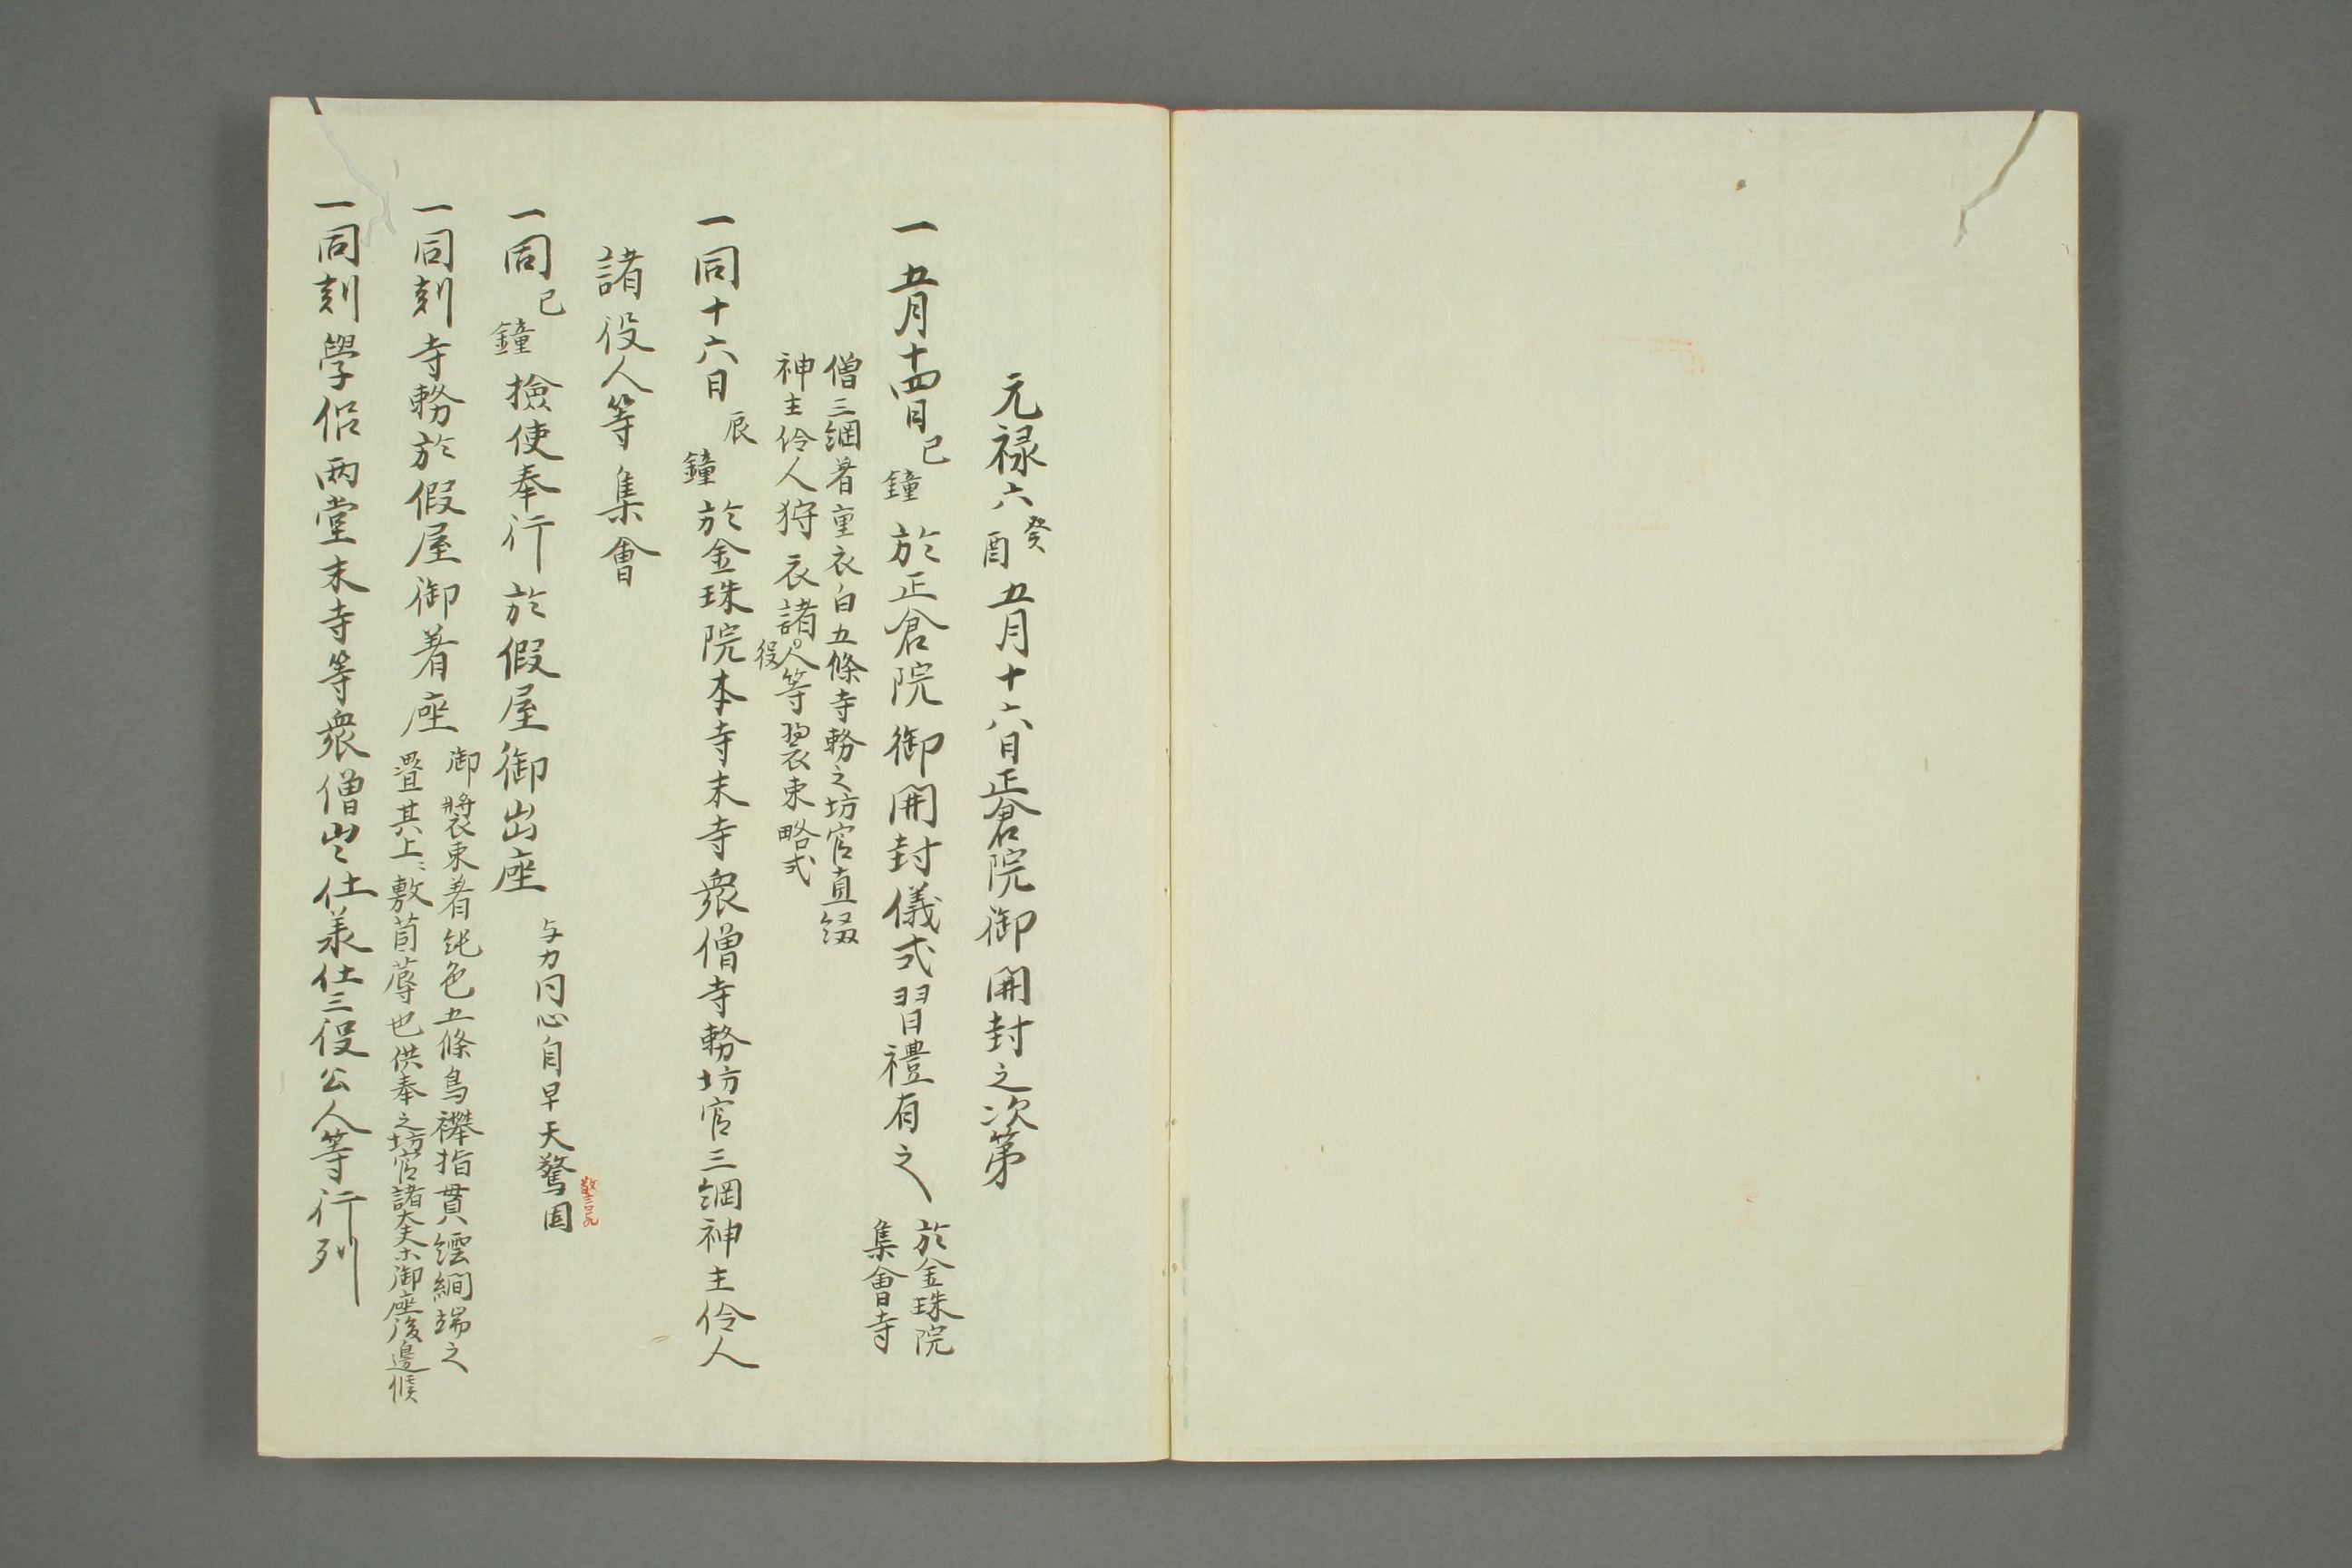 元禄六癸酉五月十六日正倉院御開封之次第
一五月十四日巳鐘於正倉院御開封儀式習禮有之
於金珠院
集會寺
僧三綱著重衣白五條寺務之坊官直綴
神主伶人狩衣諸役人等装束略式
一同十六日辰鐘於金珠院本寺末寺衆僧寺務坊官三綱神主伶人
諸役人等集會
一同巳鐘撿使奉行於假屋御出座
与力同心自早天驚固
一同刻寺務於假屋御着座
御装束着鈍色五條鳥襷指貫繧繝端之
疊其上ニ敷茵蓐也供奉之坊官諸大夫等御座後邊候
一同刻學侶両堂末寺等衆僧出仕羕仕三役公人等行列